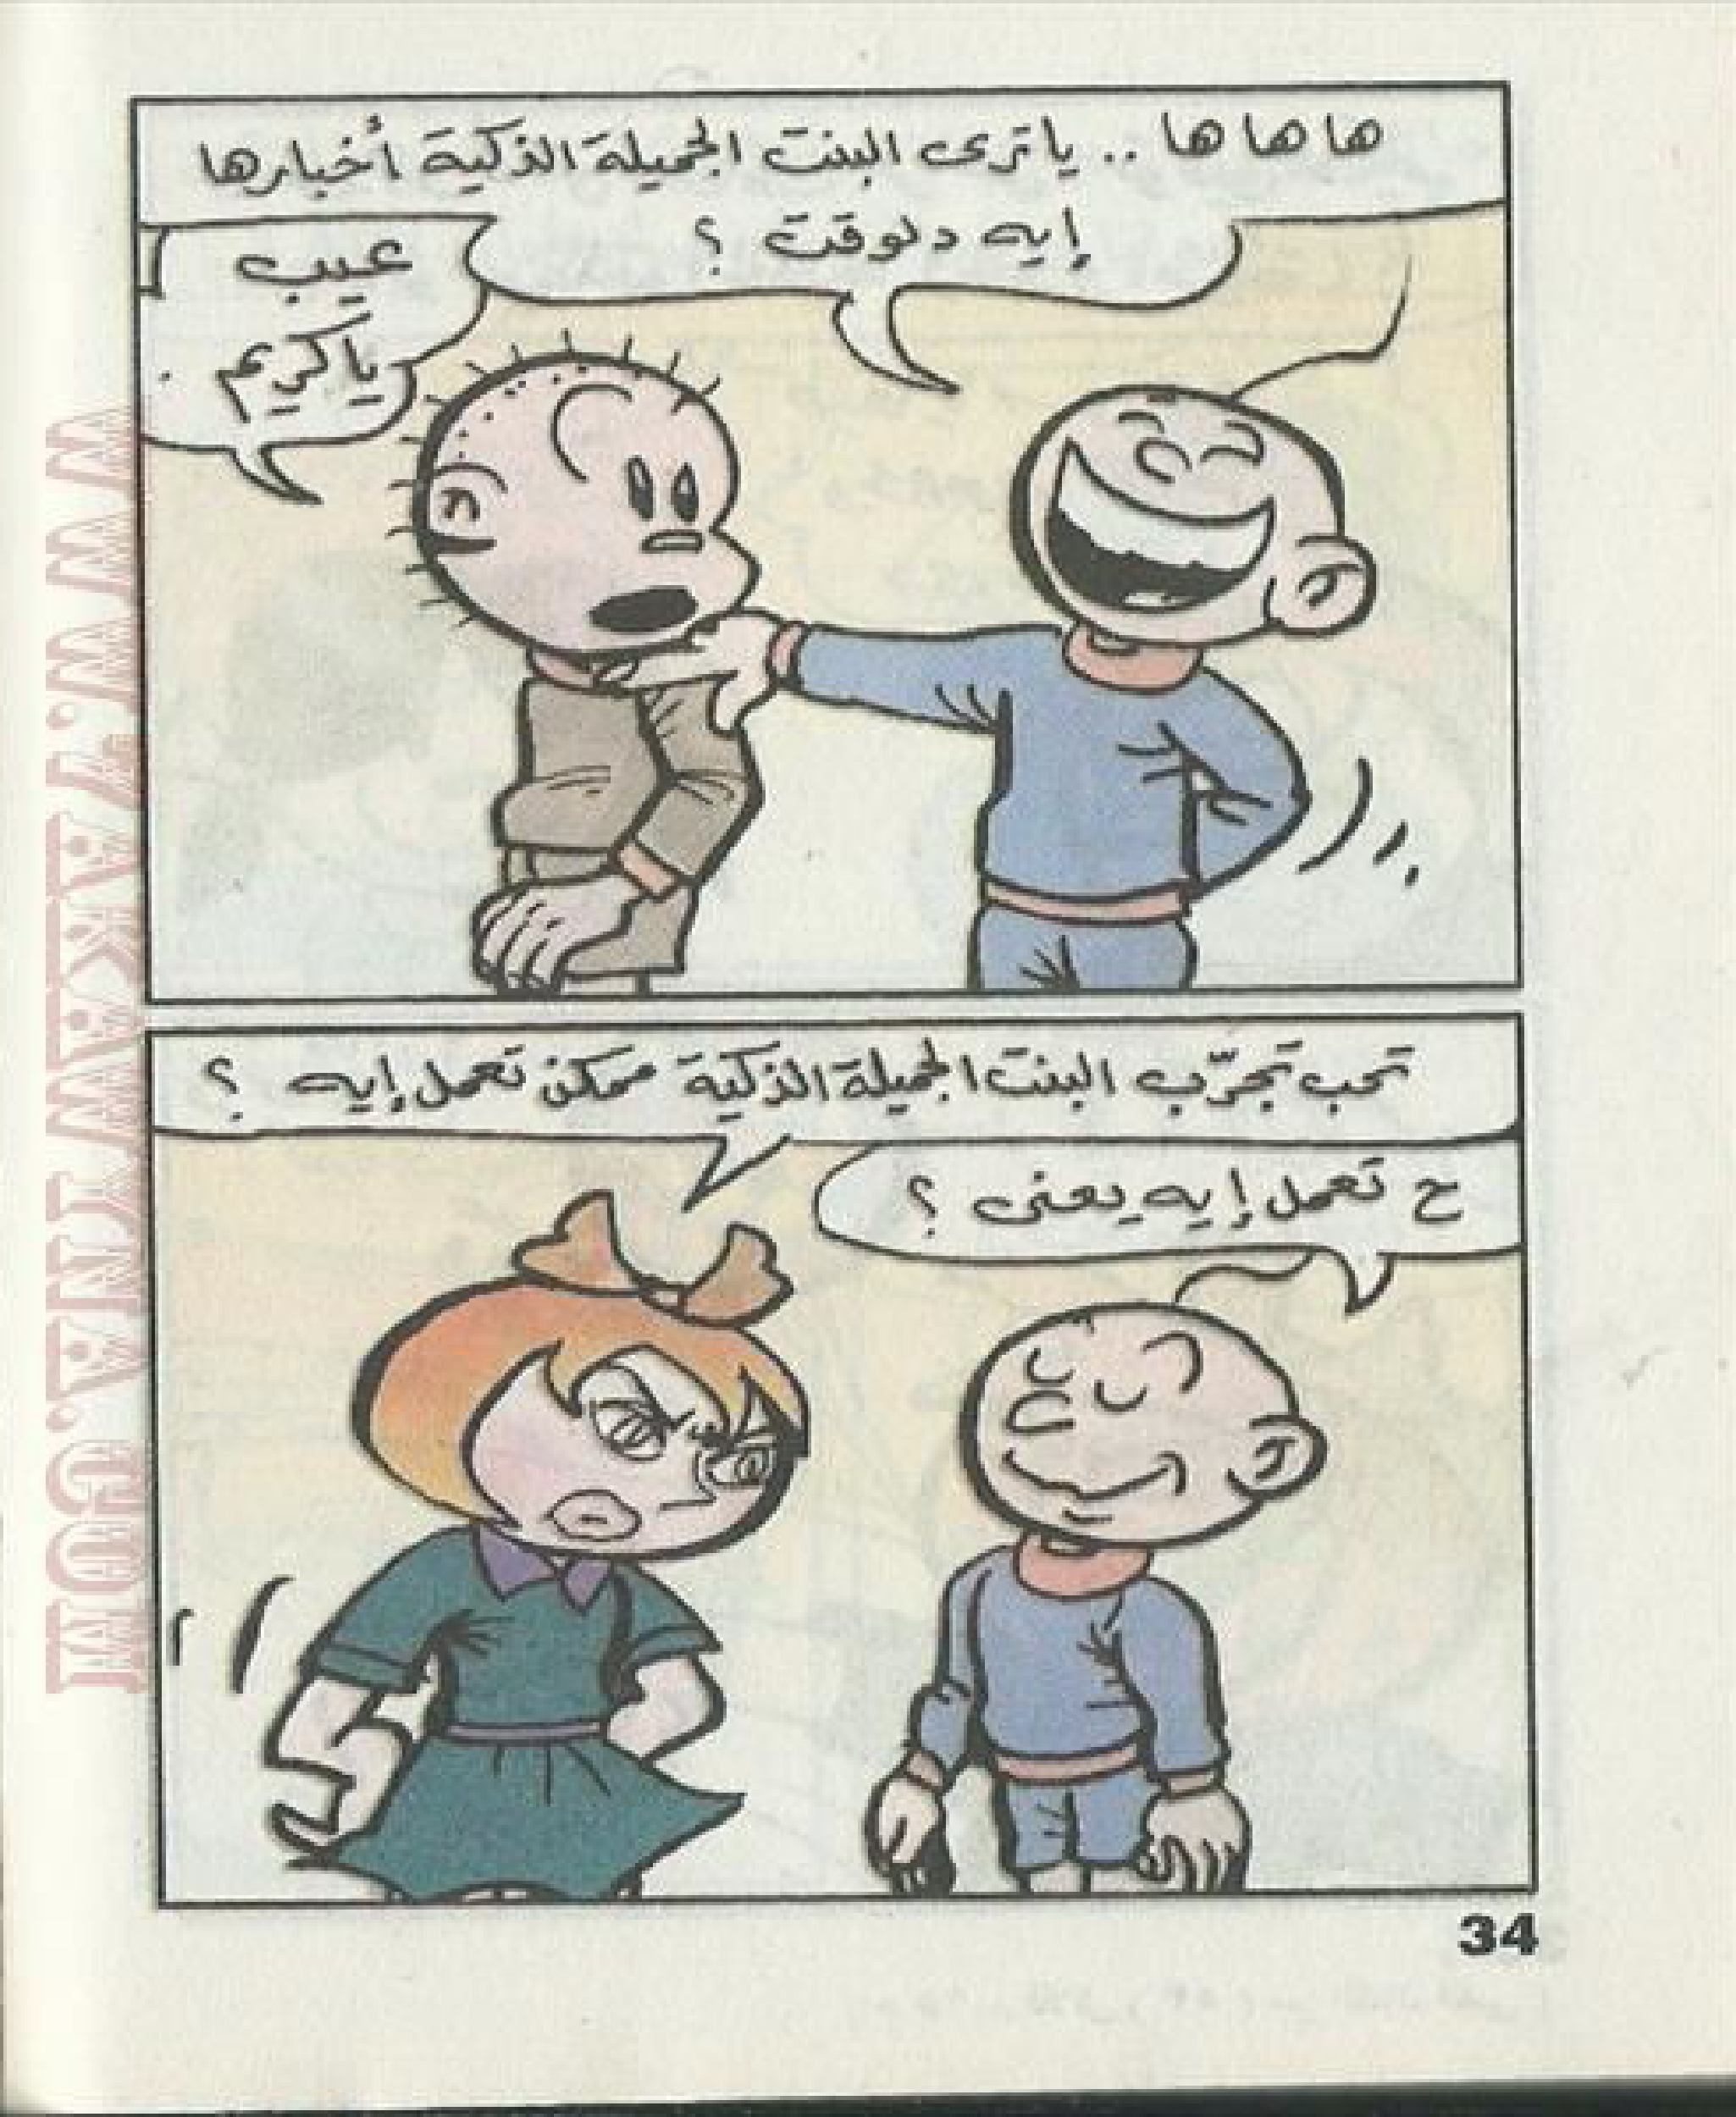 ها ها ها .. ياترى البنت الجميلة الذكية أخبارها
إيه دلوقت ؟
عيب
ياكريم .
تحب تجرّب البنت الجميلة الذكية ممكن تعمل إيه ؟
ح تعمل إيه يعنى ؟
34
WWW.TAKAWTNA.COM